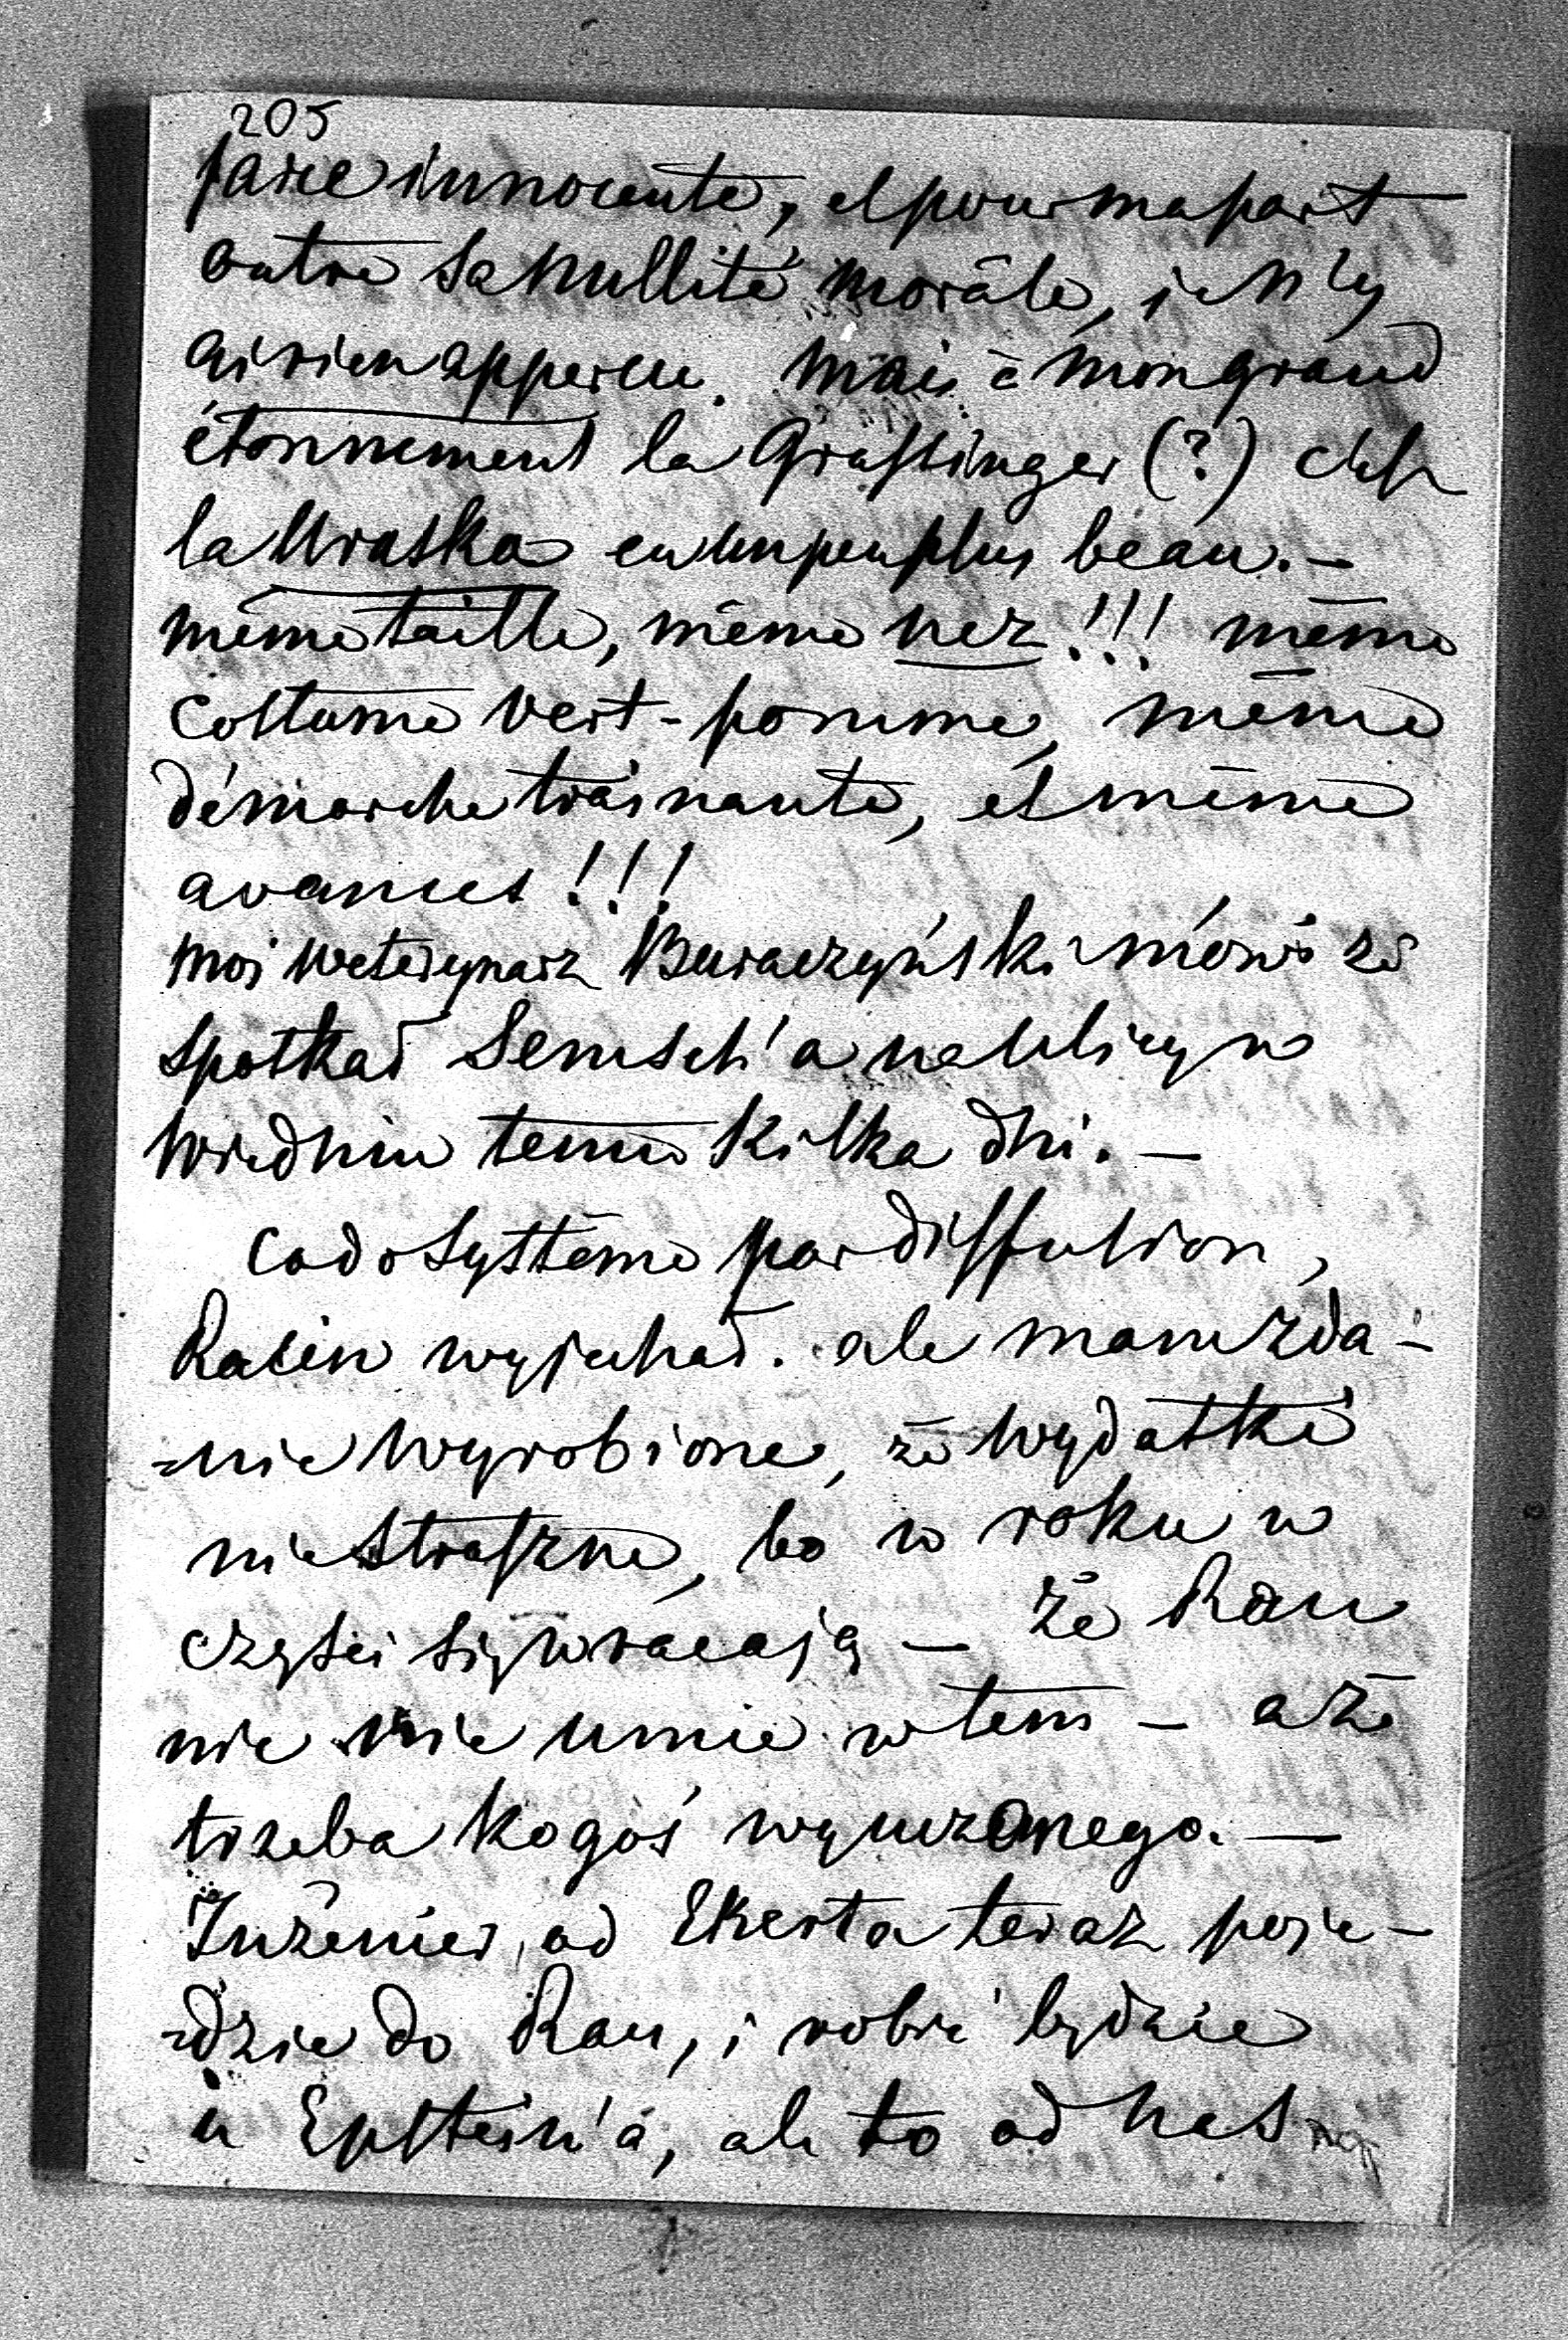 205
farce innocente, et pour ma part
outre sa nullité morale, je n'y
ai rien apperçu. Mais à mon grand
étonnement la Grassinger (?) c'est
la Mraska en un peu plus beau. —
même taille, même nez!!! même
costume vert-pomme, même
démarche traînante, et même
avances!!!
Mój weterynarz Buraczyński mówi że
spotkał Semsch'a na ulicy w
Wiedniu temu kilka dni. —
Co do Système par diffusion,
Racin wyjechał. ale mam zda-
-nie wyrobione, że wydatki
nie straszne, bo w roku w
części się wracają — że Rau
nic nie umie w tem — a że
trzeba kogoś wyuczonego. —
Inżenier od Ekerta teraz poje-
-dzie do Rau, i robić będzie
u Epstein'a, ale to od nas